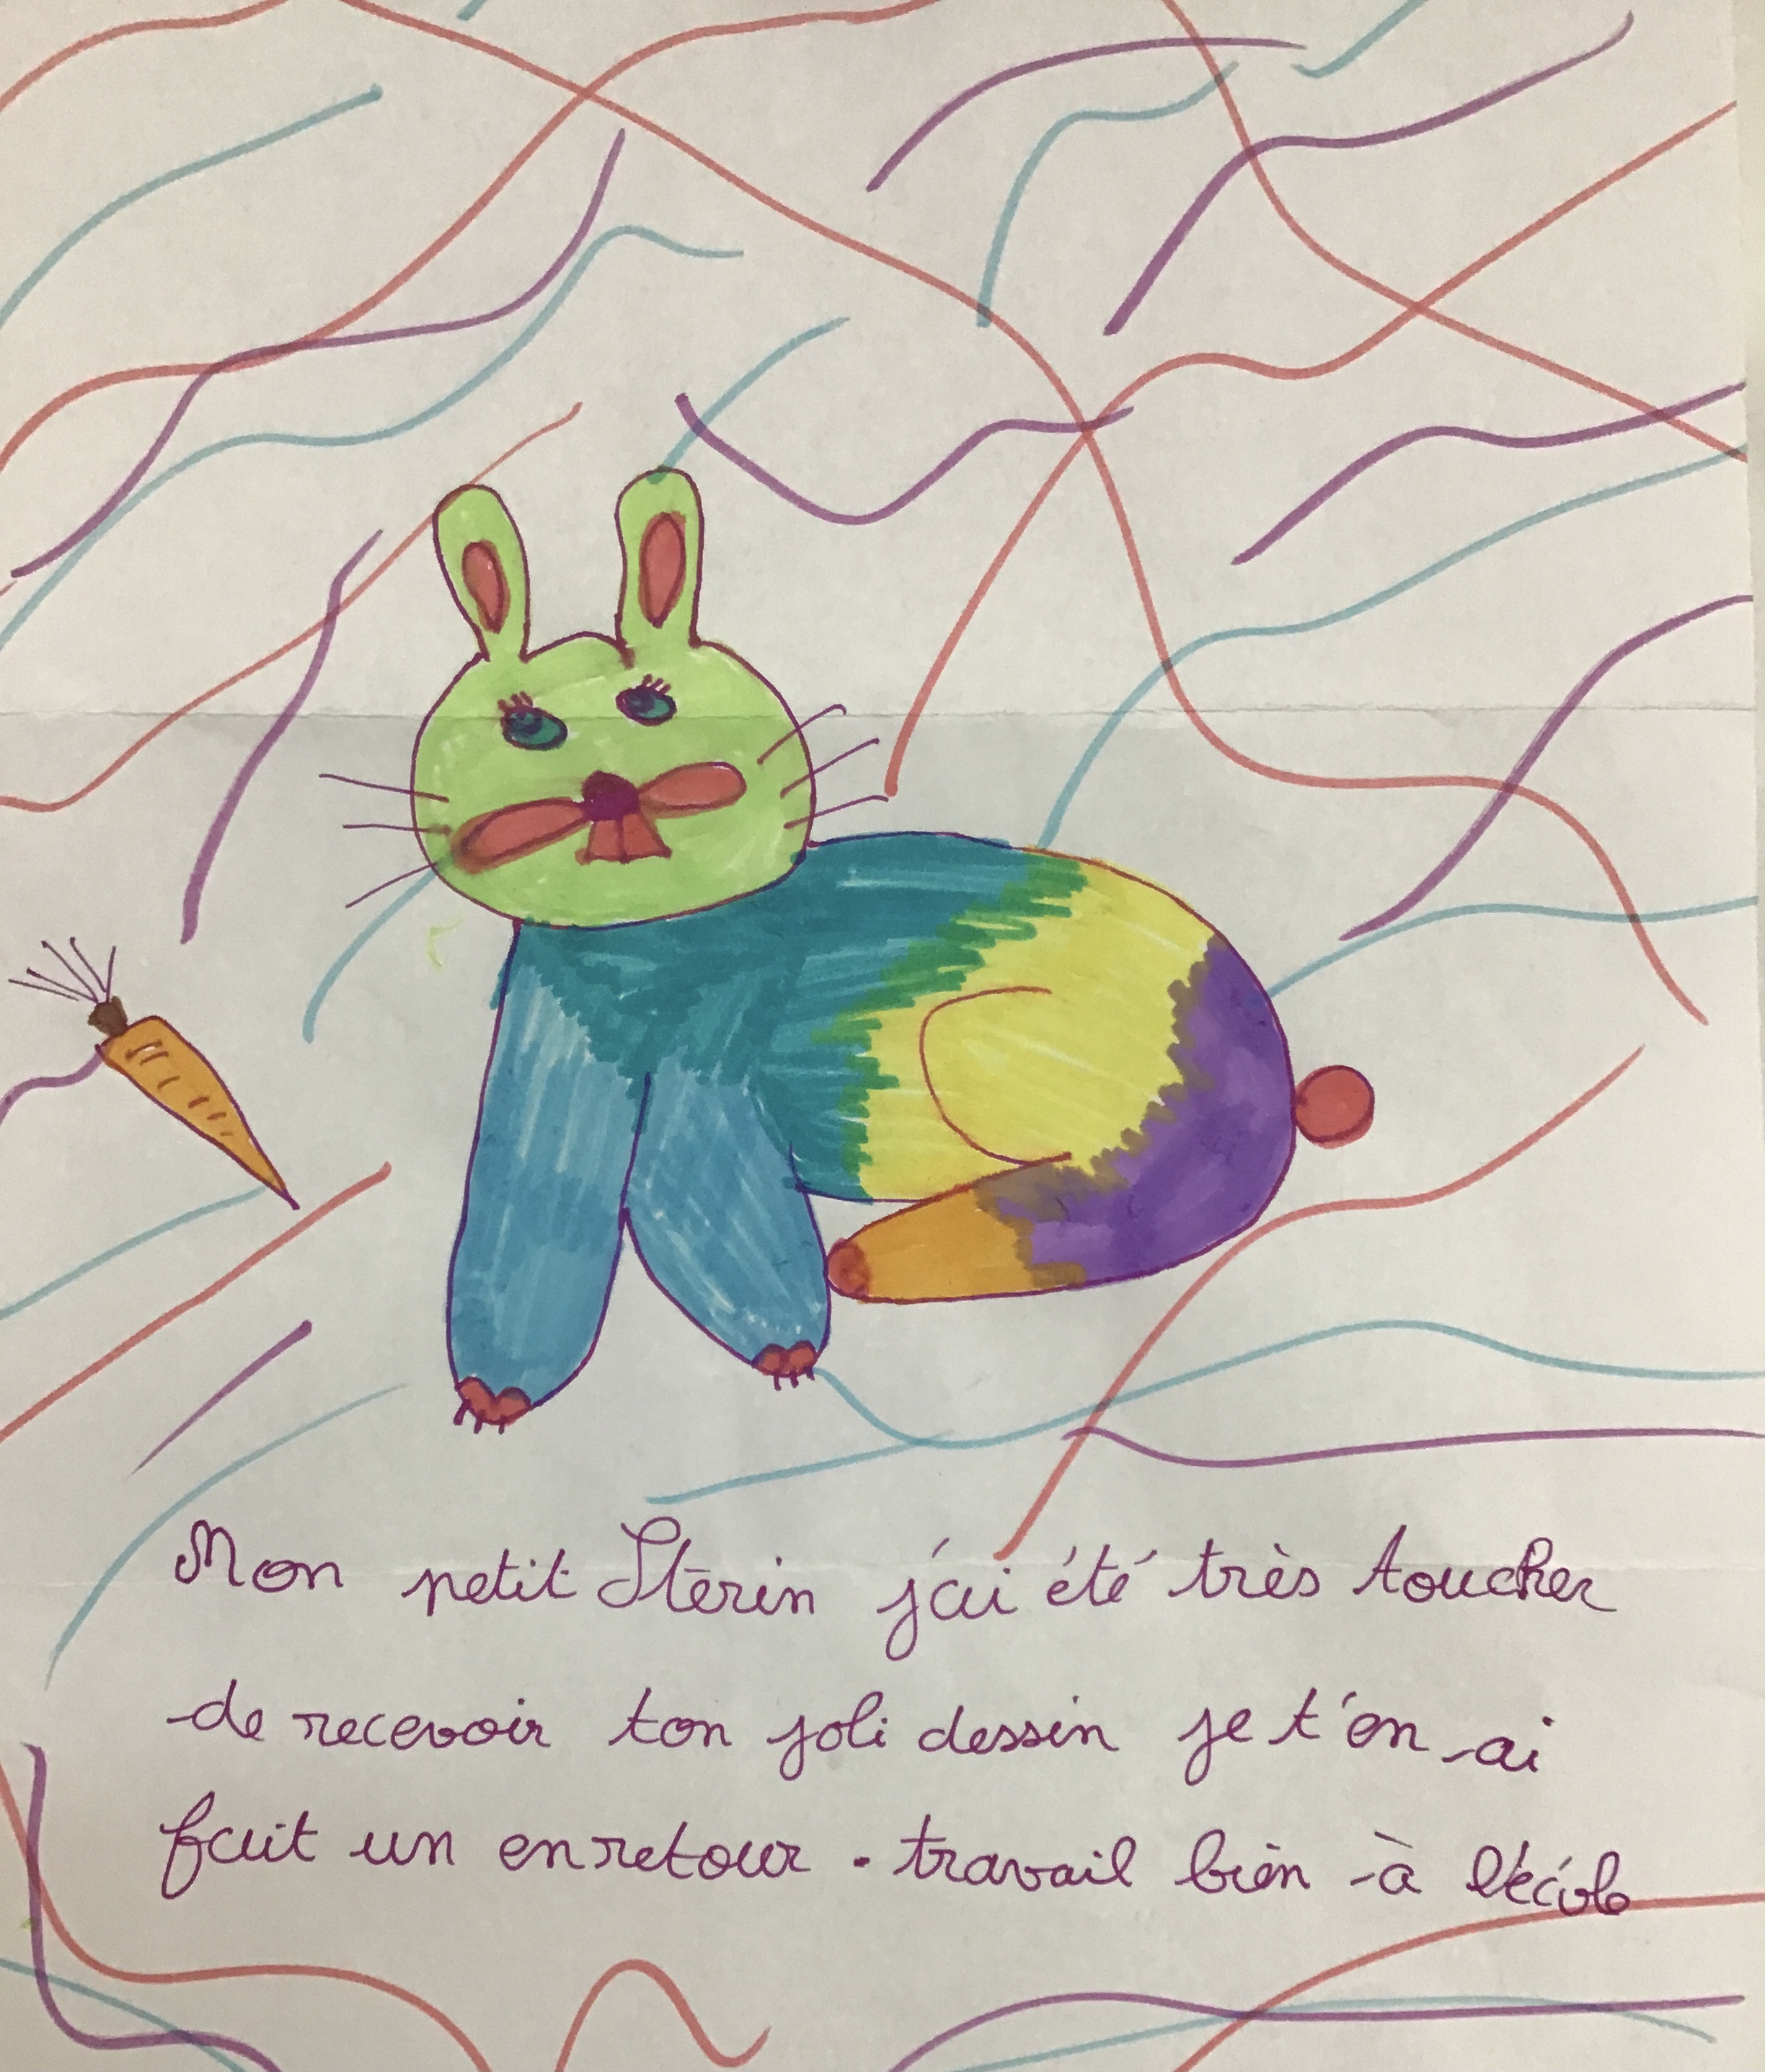 Mon petit Stérin j'ai été très toucher
de recevoir ton joli dessin je t'en ai
fait un en retour . travail bien à l'école